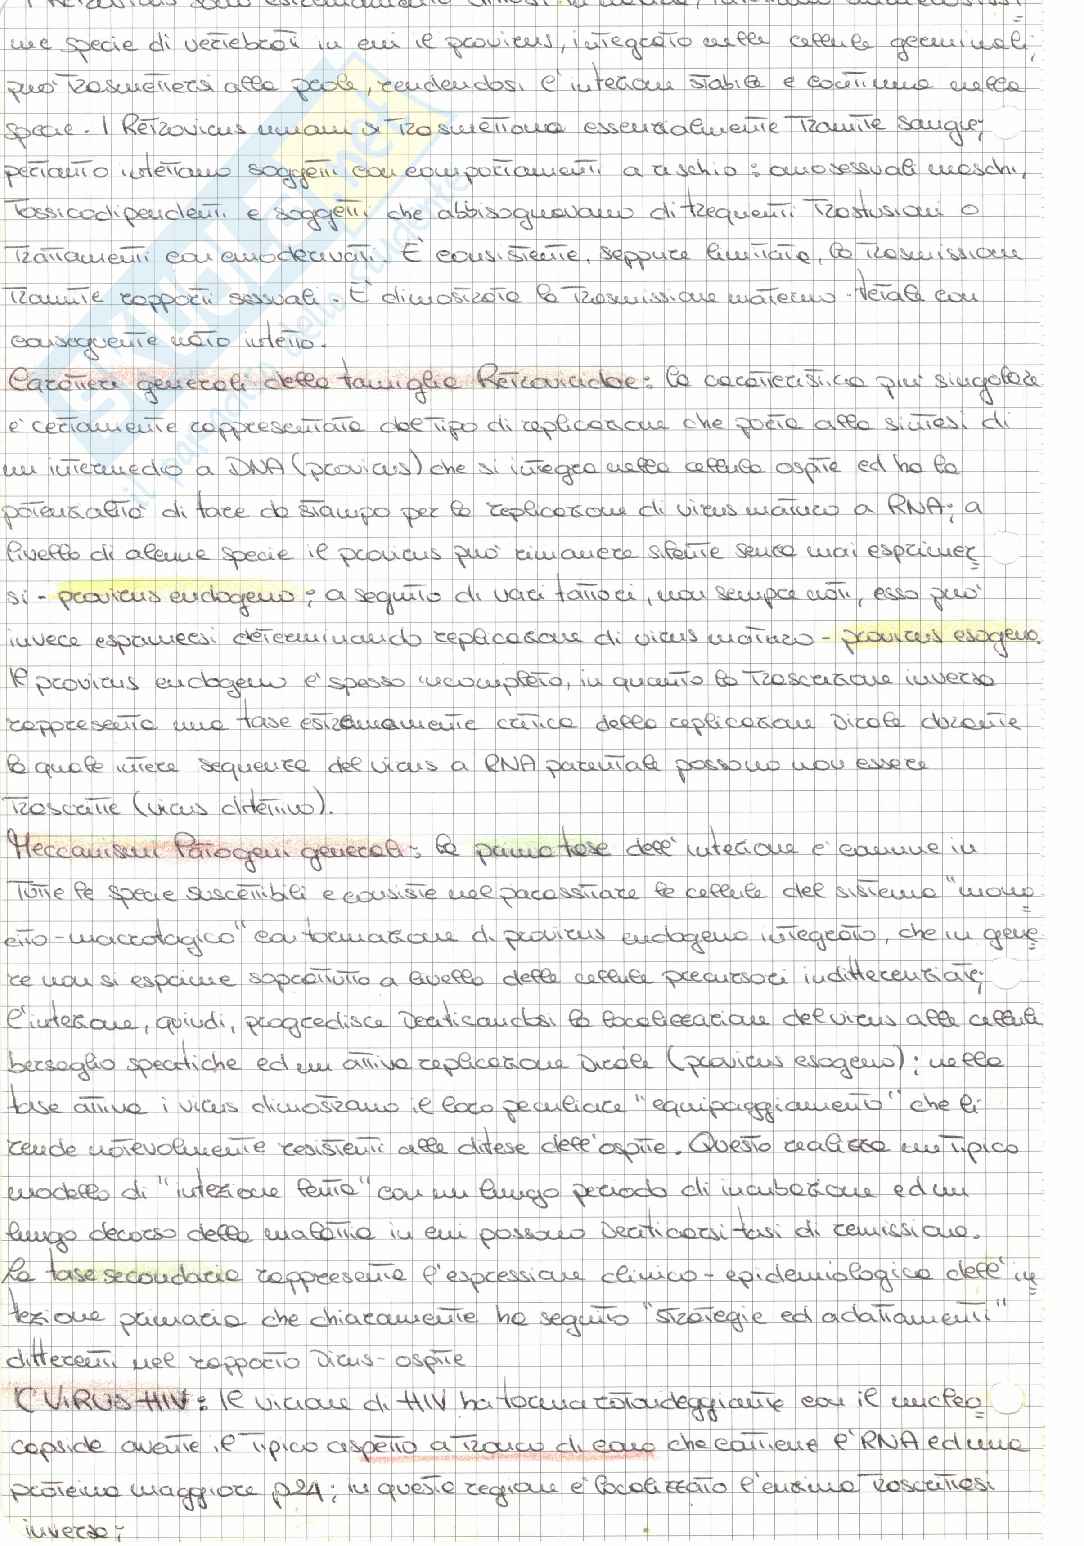 I Retrovirus sono estremamente diffusi in natura,
me specie di vertebrati in cui il provirus, integrato nelle cellule germinali,
può trasmettersi alla prole, rendendosi l'infezione stabile e continua nella
specie. I Retrovirus umani si trasmettono essenzialmente tramite sangue;
pertanto infettano soggetti con comportamenti a rischio: omosessuali maschi,
tossicodipendenti e soggetti che abbisognavano di frequenti trasfusioni o
trattamenti con emoderivati. E' consistente, seppure limitata, la trasmissione
tramite rapporti sessuali. E' dimostrata la trasmissione materno-fetale con
conseguente nato infetto.
Caratteri generali della famiglia Retroviridae: la caratteristica più singolare
è certamente rappresentata dal tipo di replicazione che porta alla sintesi di
un intermedio a DNA (provirus) che si integra nella cellula ospite ed ha la
potenzialità di fare da stampo per la replicazione di virus maturo a RNA; a
livello di alcune specie il provirus può rimanere silente senza mai esprimer
si - provirus endogeno; a seguito di vari fattori, non sempre noti, esso può
invece esprimersi determinando replicazione di virus maturo - provirus esogeno.
Il provirus endogeno è spesso incompleto, in quanto la trascrizione inversa
rappresenta una fase estremamente critica della replicazione virale durante
la quale intere sequenze del virus a RNA parentale possono non essere
trascritte (virus difettivo).
Meccanismi Patogeni generali: la prima fase dell'infezione è comune in
tutte le specie suscettibili e consiste nel parassitare le cellule del sistema "mono
cito-macrofagico" con formazione di provirus endogeno integrato, che in gene
re non si esprime soprattutto a livello delle cellule precursori indifferenziate;
l'infezione, quindi, progredisce verificandosi la localizzazione del virus alle cellule
bersaglio specifiche ed un attiva replicazione virale (provirus esogeno); nella
fase attiva i virus dimostrano il loro peculiare "equipaggiamento" che li
rende notevolmente resistenti alle difese dell'ospite. Questo realizza un tipico
modello di "infezione lenta" con un lungo periodo di incubazione ed un
lungo decorso della malattia in cui possono verificarsi fasi di remissione.
La fase secondaria rappresenta l'espressione clinico-epidemiologica dell'in
fezione primaria che chiaramente ha seguito "strategie ed adattamenti"
differenti nel rapporto virus-ospite
VIRUS HIV: Il virione di HIV ha forma rotondeggiante con il nucleo
capside avente il tipico aspetto a tronco di cono che contiene l'RNA ed una
proteina maggiore p24; in questa regione è localizzato l'enzima trascrittasi
inversa;